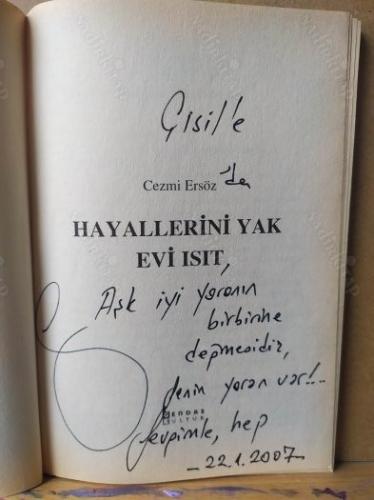 Çisil'e
Cezmi Ersöz 'den
HAYALLERİNİ YAK
EVİ ISIT,
Aşk iki yaranın
birbirine
değmesidir,
senin yaran var!..
GENDAŞ
KÜLTÜR
Sevgimle, hep
-22.1.2007-